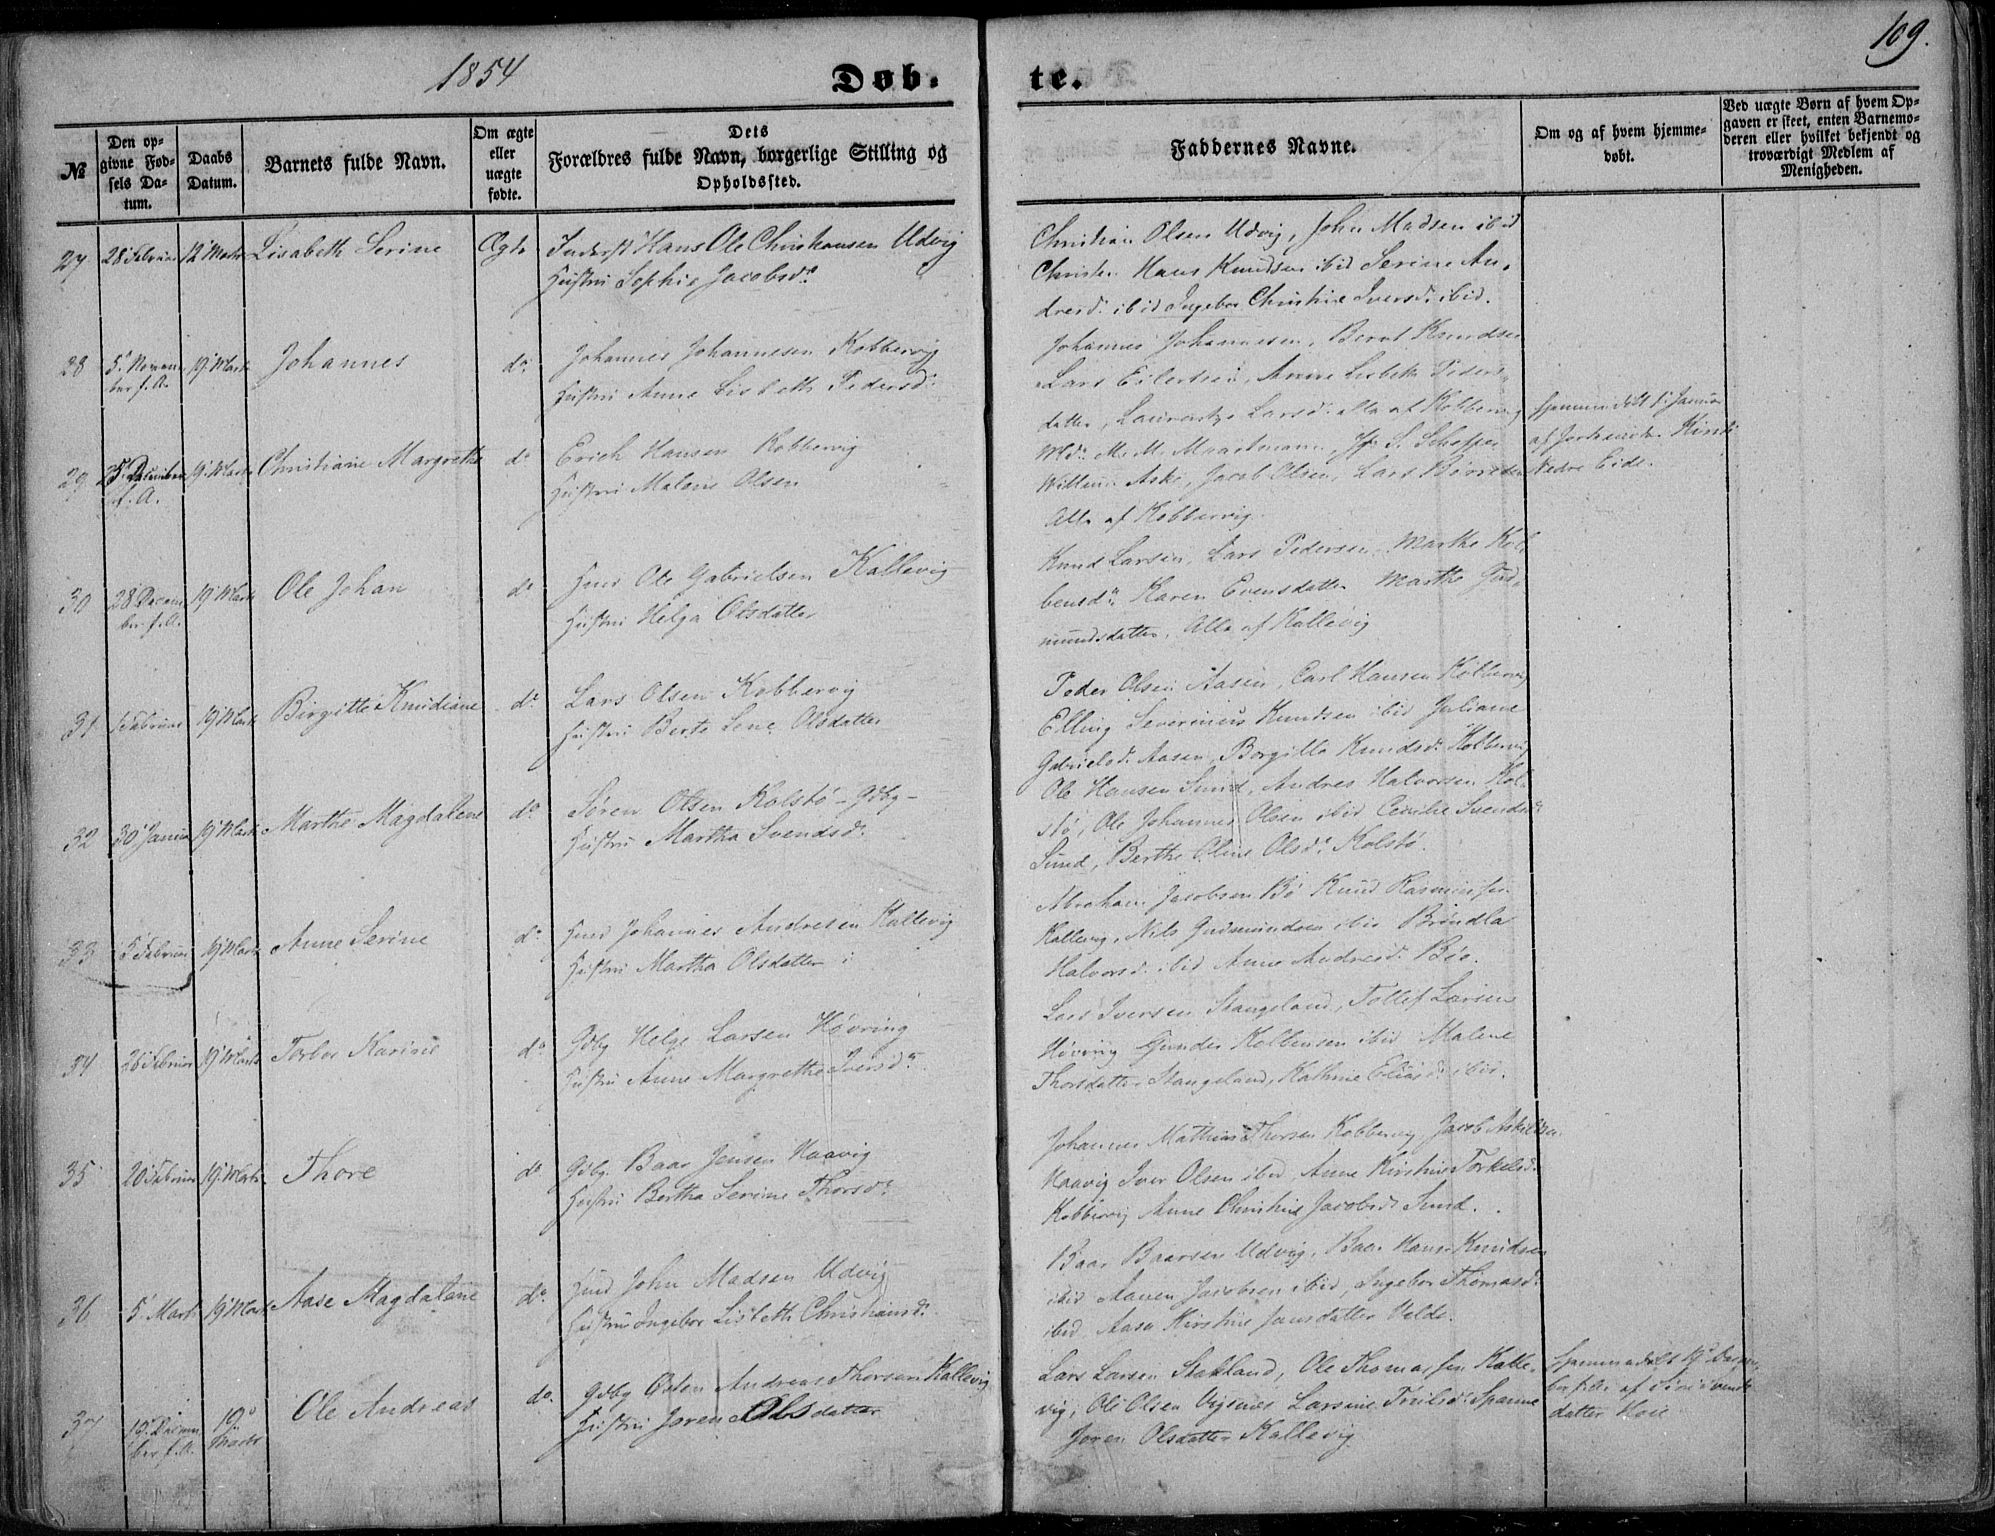 1854
109.
Døb-
te.
№
Den op-
givne Fød-
sels Da-
tum.
Daabs
Datum.
Barnets fulde Navn.
Om ægte
eller
uægte
fødte.
Dets
Forældres fulde Navn, borgerlige Stilling og
Opholdssted.
Faddernes Navne.
Om og af hvem hjemme-
døbt.
Ved uægte Børn af hvem Op-
gaven er skeet, enten Barnemo-
deren eller hvilket bekjendt og
troværdigt Medlem af
Menigheden.
27
28 Februar
12 Marts
Lisabeth Serine
Ægte
Inderst Hans Ole Christiansen Udvig
Hustru Sophie Jacobsd.
Christian Olsen Udvig, John Madsen ibid
Hans Knudsen ibid Serine An-
dresd. ibid Ingebor Christine Iversd. ibid.
28
5 Novem
ber f. A.
19 Marts
Johannes
do
Johannes Johannesen Kobbervig
Hustru Anne Lisbeth Pedersd.
Johannes Johannesen, Bernt Knudsen
Lars Eilertsen, Anne Lisbeth Peders-
datter, Larsd. alle af Kobbervig
29
25 December
f. A.
19 Marts
Christiane Margrethe
do
Erich Hansen Kobbervig
Hustru Malene Olsen
M. M. Maartmann,
Jacob Olsen, Lars
Alle af Kobbervig.
Januar
af
Nedre Eide.
30
28 Decem
ber f. A.
19 Marts
Ole Johan
do
Hmd Ole Gabrielsen Kallevig
Hustru Helga Olsdatter
Knud Larsen, Lars Pedersen, Marthe Kol-
bensd. Karen Evensdatter Marthe Gud-
mundsdatter, Alle af Kallevig
31
Februar
19 Marts
Birgitte Knudiane
do
Lars Olsen Kobbervig
Hustru Berte Lene Olsdatter
Peder Olsen Aasen, Carl Hansen Kobbervig
Elling Severinius Knudsen ibid Juliane
Gabrielsd. Aasen, Borgilla Knudsd. Kobbervig
32
30 Januar
19 Marts
Marthe Magdalene
do
Søren Olsen Kolstø - Gdbg -
Hustru Martha Svendsd.
Ole Hansen Sund, Andres Halvorsen Kol-
stø, Ole Johannes Olsen ibid Cecilie Svendsd.
Sund, Berthe Oline Olsd. Kolstø.
33
5 Februar
19 Marts
Anne Serine
do
Hmd Johannes Andresen Kallevig
Hustru Martha Olsdatter
Abraham Jacobsen Bø Knud Rasmussen
Kallevig, Nils Gudmundsen ibid Brøndla
Halvorsd. ibid Anne Andresd. Bøe.
34
26 Februar
19 Marts
Torbor Karine
do
Gdbg Helge Larsen Høvring
Hustru Anne Margrethe Iversd.
Lars Iversen Stangeland, Tollef Larsen
Høvring Gunder Kolbensen ibid Malene
Thorsdatter Stangeland, Kathrine Eliasd. ibid.
35
20 Februar
19 Marts
Thore
do
Gdbg. Baar Jensen Haavig
Hustru Bertha Serine Thorsd.
Johannes Mathias Thorsen Kobbervig Jacob Askildsen
Haavig Iver Olsen ibid, Anne Kirstine Torkelsd.
Kobbervig Anne Christine Jacobsd. Sund.
36
5 Marts
19 Marts
Aase Magdalene
do
Hmd John Madsen Udvig
Hustru Ingebor Lisbeth Christiansd.
Baar Baarsen Udvig, Baar Hans Knudsen
ibid Aanen Jacobsen ibid, Ingebor Thomasd.
ibid Aasa Kirstine Jansdatter Velde.
37
19 Decem
ber f. A.
19
Marts
Ole Andreas
do
Gdbg Østen Andreas Thorsen Kallevig
Hustru Joren Olsdatter
Lars Larsen Stakland, Ole Thomassen Kalle-
vig, Ole Olsen Vigsnes Larsine Trulsd. Spanne
Joren Olsdatter Kallevig
Hjemmedøbt 19 Decem-
ber f. A. af
datter Hoie